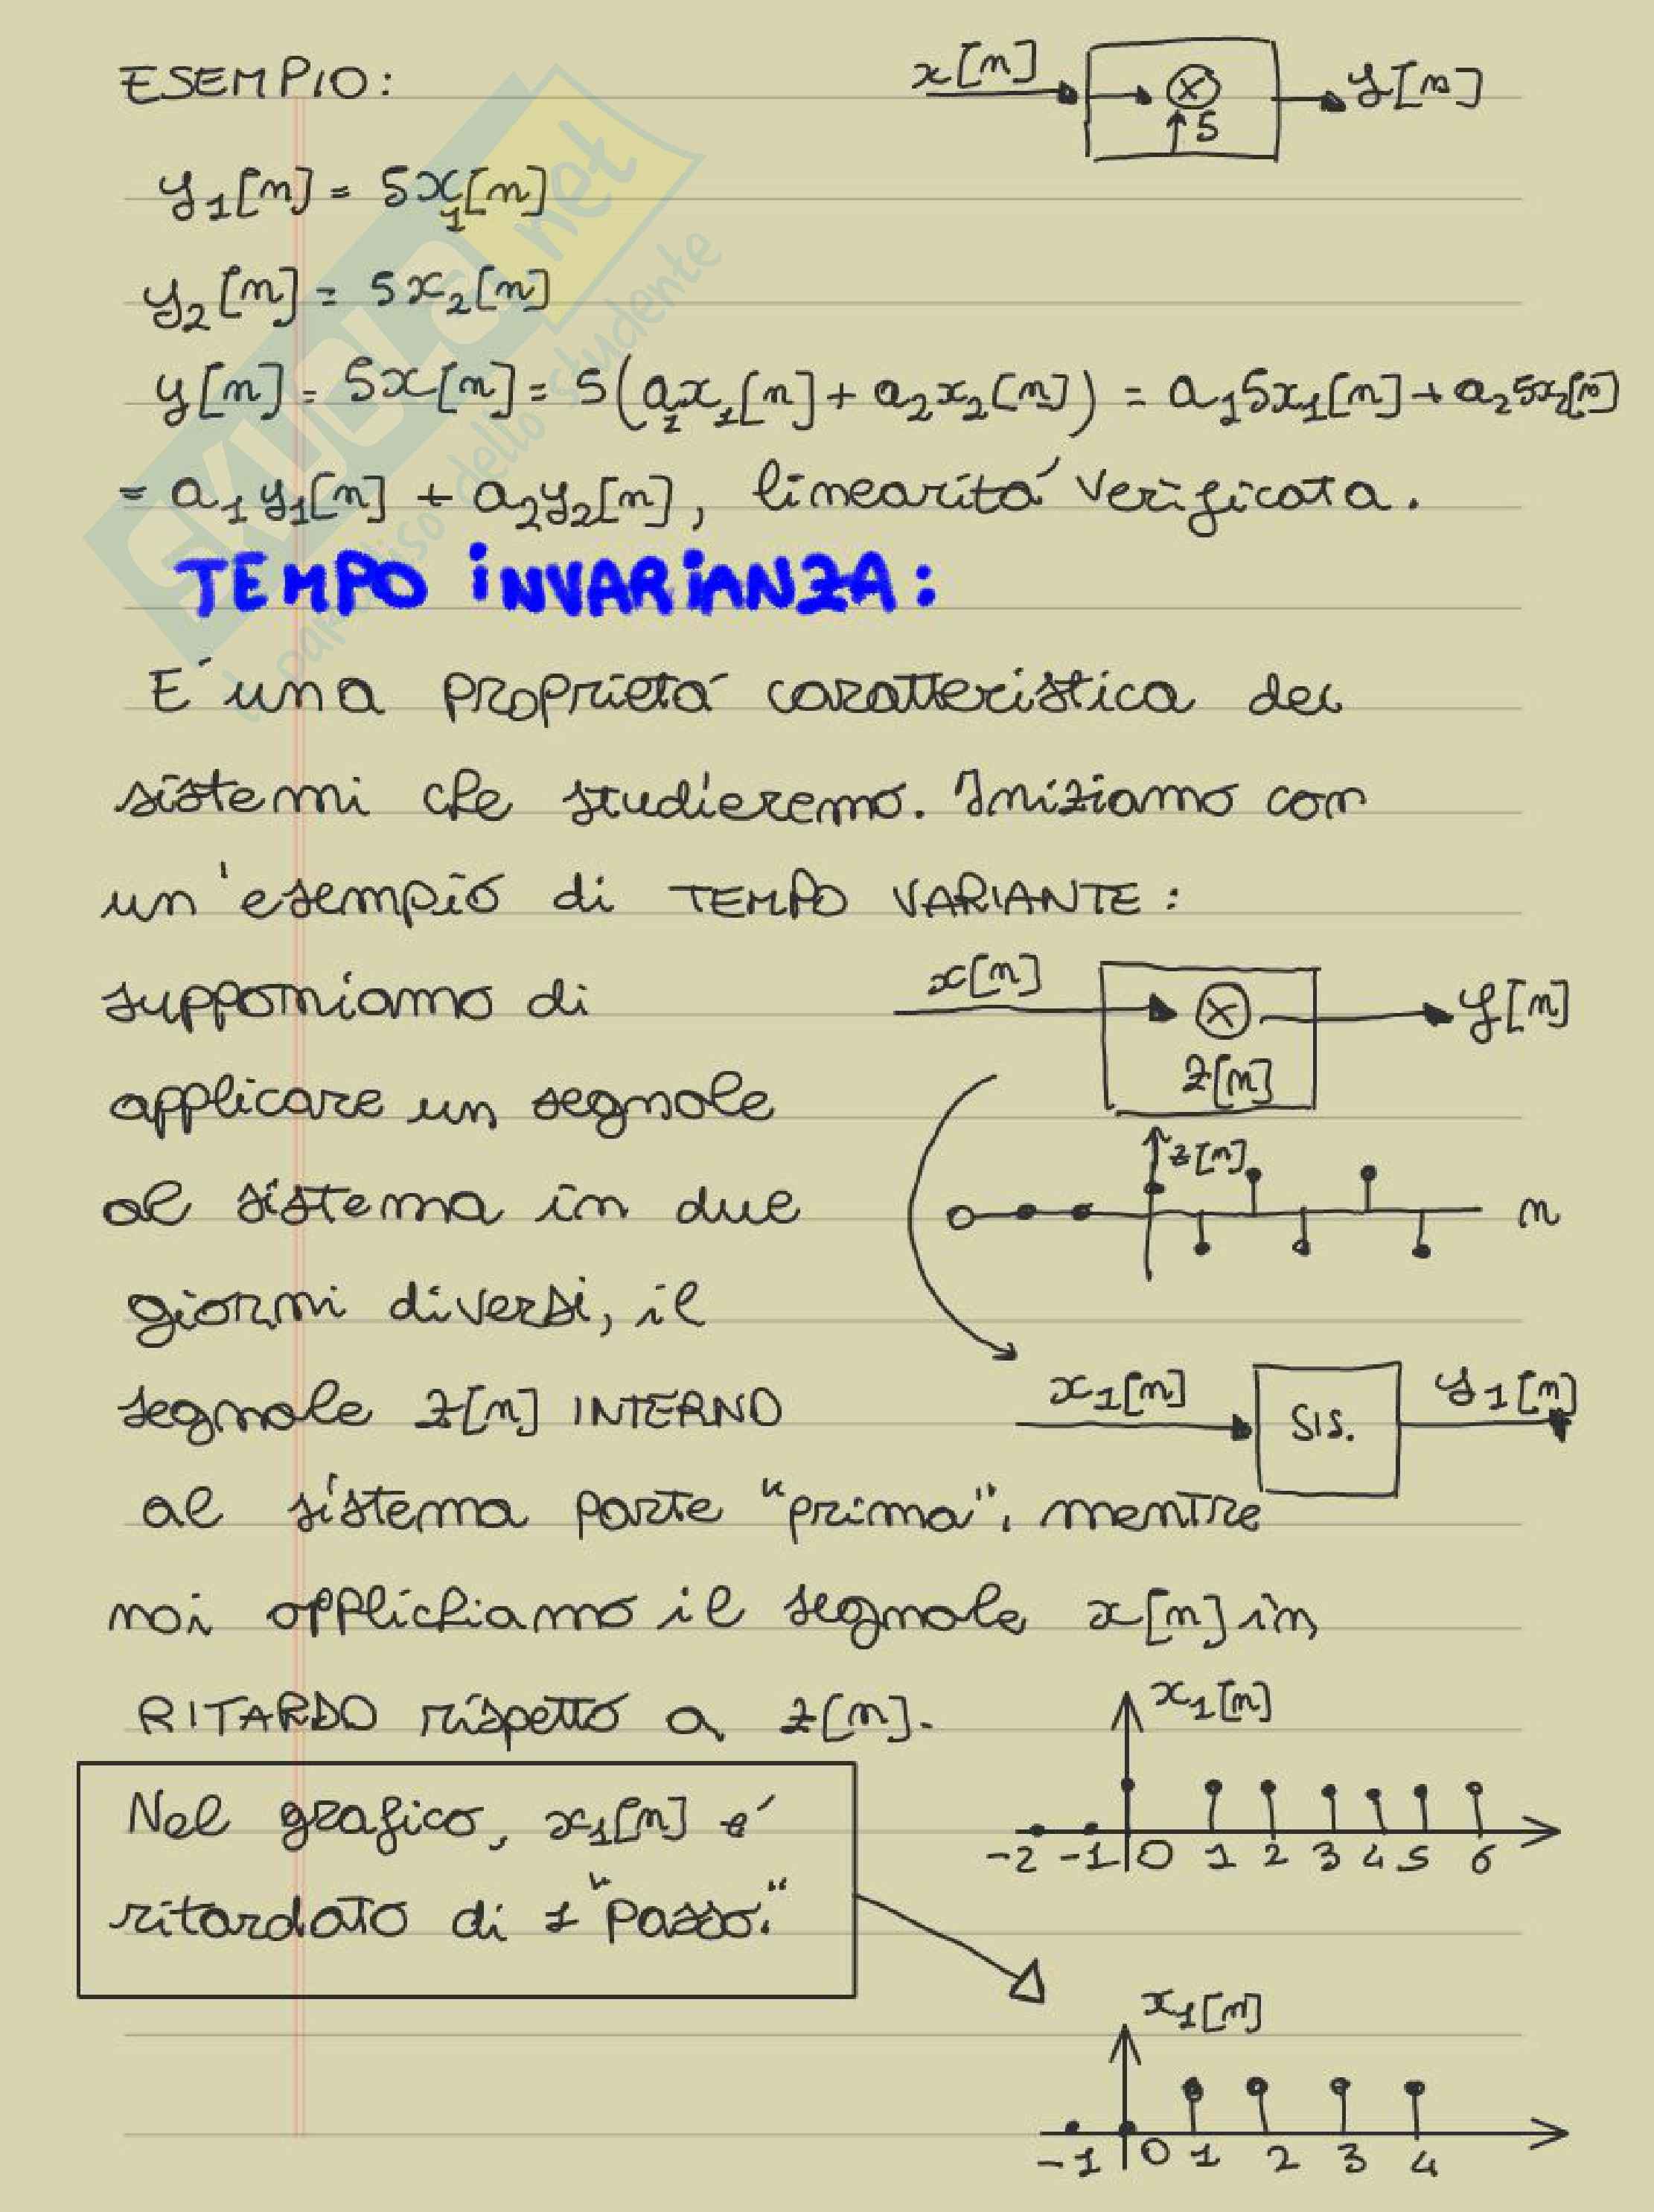 ESEMPIO:
x[n]
⊗
↑5
y[n]
y₁[n] = 5x₁[n]
y₂[n] = 5x₂[n]
y[n] = 5x[n] = 5(a₁x₁[n] + a₂x₂[n]) = a₁5x₁[n] + a₂5x₂[n]
= a₁y₁[n] + a₂y₂[n], linearitá verificata.
TEMPO INVARIANZA:
É una proprietá caratteristica dei
sistemi che studieremo. Iniziamo con
un'esempio di TEMPO VARIANTE:
supponiamo di
applicare un segnale
al sistema in due
giorni diversi, il
segnale z[n] INTERNO
al sistema parte "prima", mentre
noi applichiamo il segnale x[n] in
RITARDO rispetto a z[n].
x[n]
⊗
z[n]
y[n]
z[n]
n
x₁[n]
SIS.
y₁[n]
x₁[n]
-2 -1 0 1 2 3 4 5 6
Nel grafico, x₁[n] é
ritardato di 1 "passo."
x₁[n]
-1 0 1 2 3 4
SKUOLA.net
il paradiso dello studente